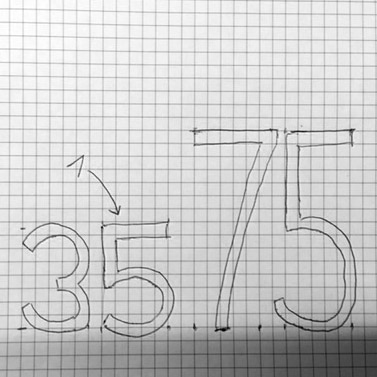 1
35 75